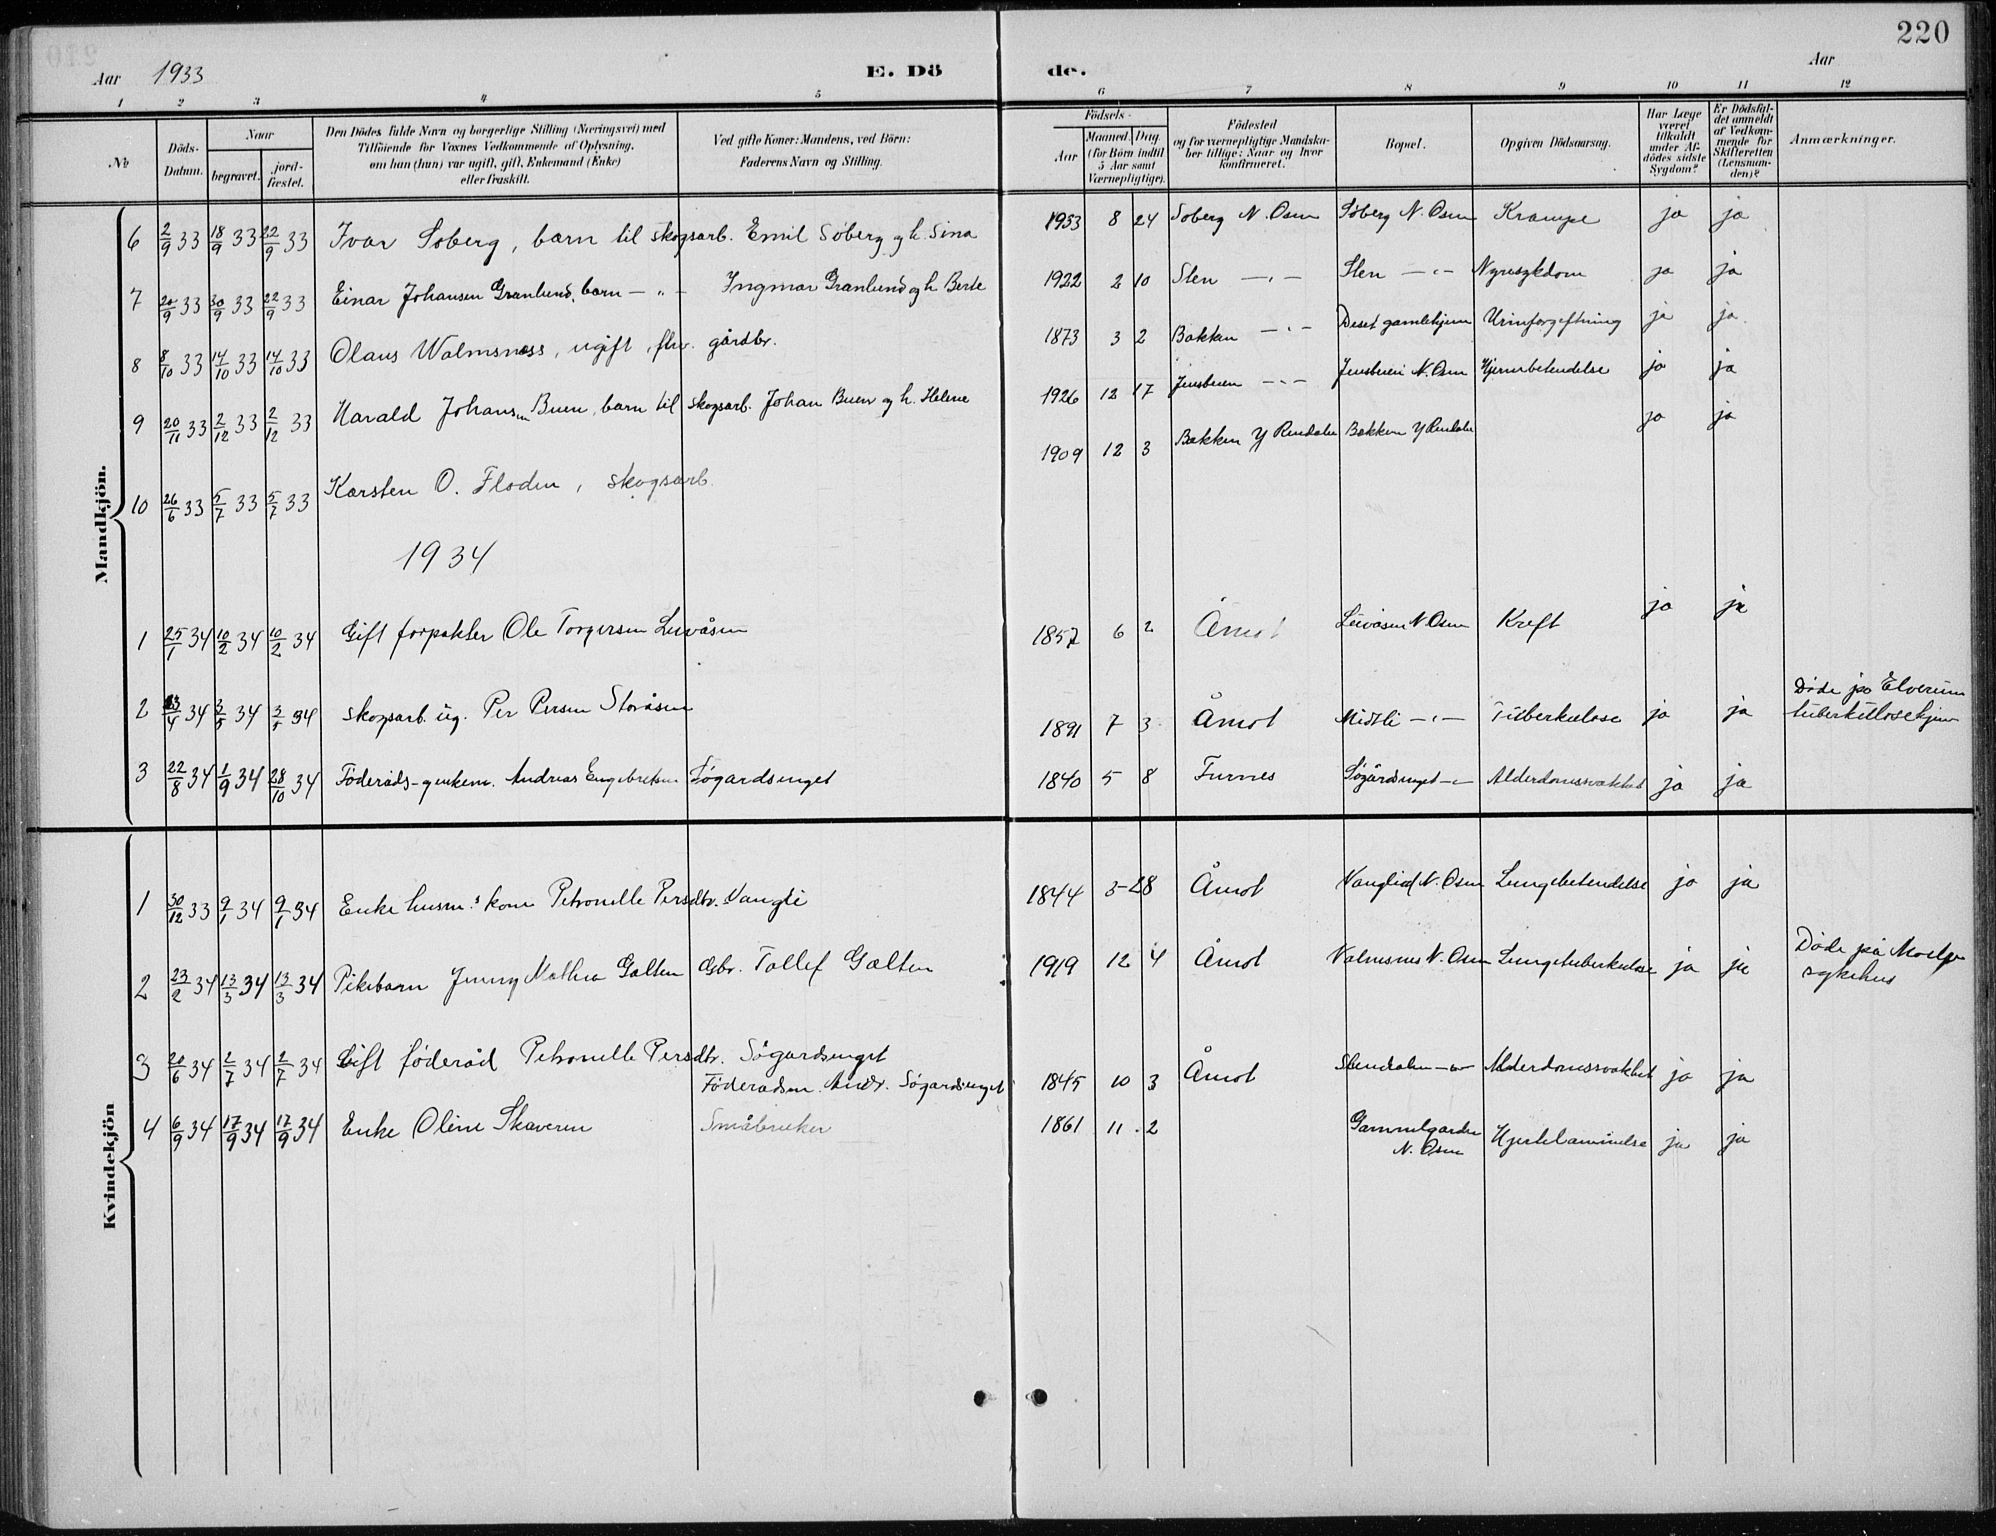 220
Aar 1933 E. Dö de. Aar
1 2 3 4 5 6 7 8 9 10 11 12
No
Döds-Datum.
Naar
begravet.
jord-fæstet.
Den Dödes fulde Navn og borgerlige Stilling (Næringsvei) med
Tilföiende for Voxnes Vedkommende af Oplysning,
om han (hun) var ugift, gift, Enkemand (Enke)
eller fraskilt.
Ved gifte Koner: Mandens, ved Börn:
Faderens Navn og Stilling.
Födsels-
Aar
Maaned. Dag.
(for Börn indtil
5 Aar samt
Værnepligtige).
Födested
og for værnepligtige Mandska-
ber tillige: Naar og hvor
konfirmeret.
Bopæl.
Opgiven Dödsaarsag.
Har Læge
været
tilkaldt
under Af-
dödes sidste
Sygdom?
Er Dödsfal-
det anmeldt
af Vedkom-
mende for
Skifteretten
(Lensman-
den)?
Anmærkninger.
Mandkjön.
6 2/9 33 18/9 33 22/9 33 Ivar Søberg, barn til skogsarb. Emil Søberg og h. Sina 1933 8 24 Søberg N. Osen Søberg N. Osen Krampe ja ja
7 20/9 33 30/9 33 22/9 33 Einar Johansen Granlund, barn — " — Ingmar Granlund og h. Berte 1922 2 10 Sten — " — Sten — " — Nyresykdom ja ja
8 8/10 33 14/10 33 14/10 33 Olaus Walmsnæss, ugift, fhv. gårdbr. 1873 3 2 Bakken — " — Deset gamlehjem Urinforgiftning ja ja
9 20/11 33 2/12 33 2/12 33 Harald Johansen Buen, barn til skogsarb. Johan Buen og h. Helene 1926 12 17 Jensbuen — " — Jensbuen N. Osen Hjernebetendelse ja ja
10 26/6 33 5/7 33 5/7 33 Karsten O. Floden, skogsarb. 1909 12 3 Bakken Y Rendalen Bakken Y Rendalen ja ja
1934
1 25/1 34 10/2 34 10/2 34 Gift forpakter Ole Torgersen Luvåsen 1857 6 2 Åmot Luvåsen N. Osen Kreft ja ja
2 23/4 34 3/5 34 3/5 34 skogsarb. ug. Per Persen Storåsen 1891 7 3 Åmot Midtli — " — Tuberkulose ja ja Døde på Elverum
tuberkulosehjem
3 22/8 34 1/9 34 28/10 34 Föderåds-enkem. Andreas Engebretsen Søgardsenget 1840 5 8 Furnes Søgårdsenget — " — Alderdomssvakhet ja ja
Kvindekjön
1 30/12 33 9/1 34 9/1 34 Enke husm.s kone Petronelle Persdtr. Vangli 1844 3-28 Åmot N. Osen Lungebetendelse ja ja
2 23/2 34 13/3 34 13/3 34 Pikebarn Jenny Mathea Galten Gbr. Tollef Galten 1919 12 4 Åmot Valmsnes N. Osen Lungetuberkulose ja ja Døde på
sykehus
3 20/6 34 2/7 34 2/7 34 Gift föderåd Petronelle Persdtr. Søgardsenget
Föderådsm. Andr. Søgardsenget 1845 10 3 Åmot Stendalen — " — Alderdomssvakhet ja ja
4 6/9 34 17/9 34 17/9 34 Enke Oline Skaveren Småbruker 1861 11 2 Gammelgarden
N. Osen Hjertelammelse ja ja